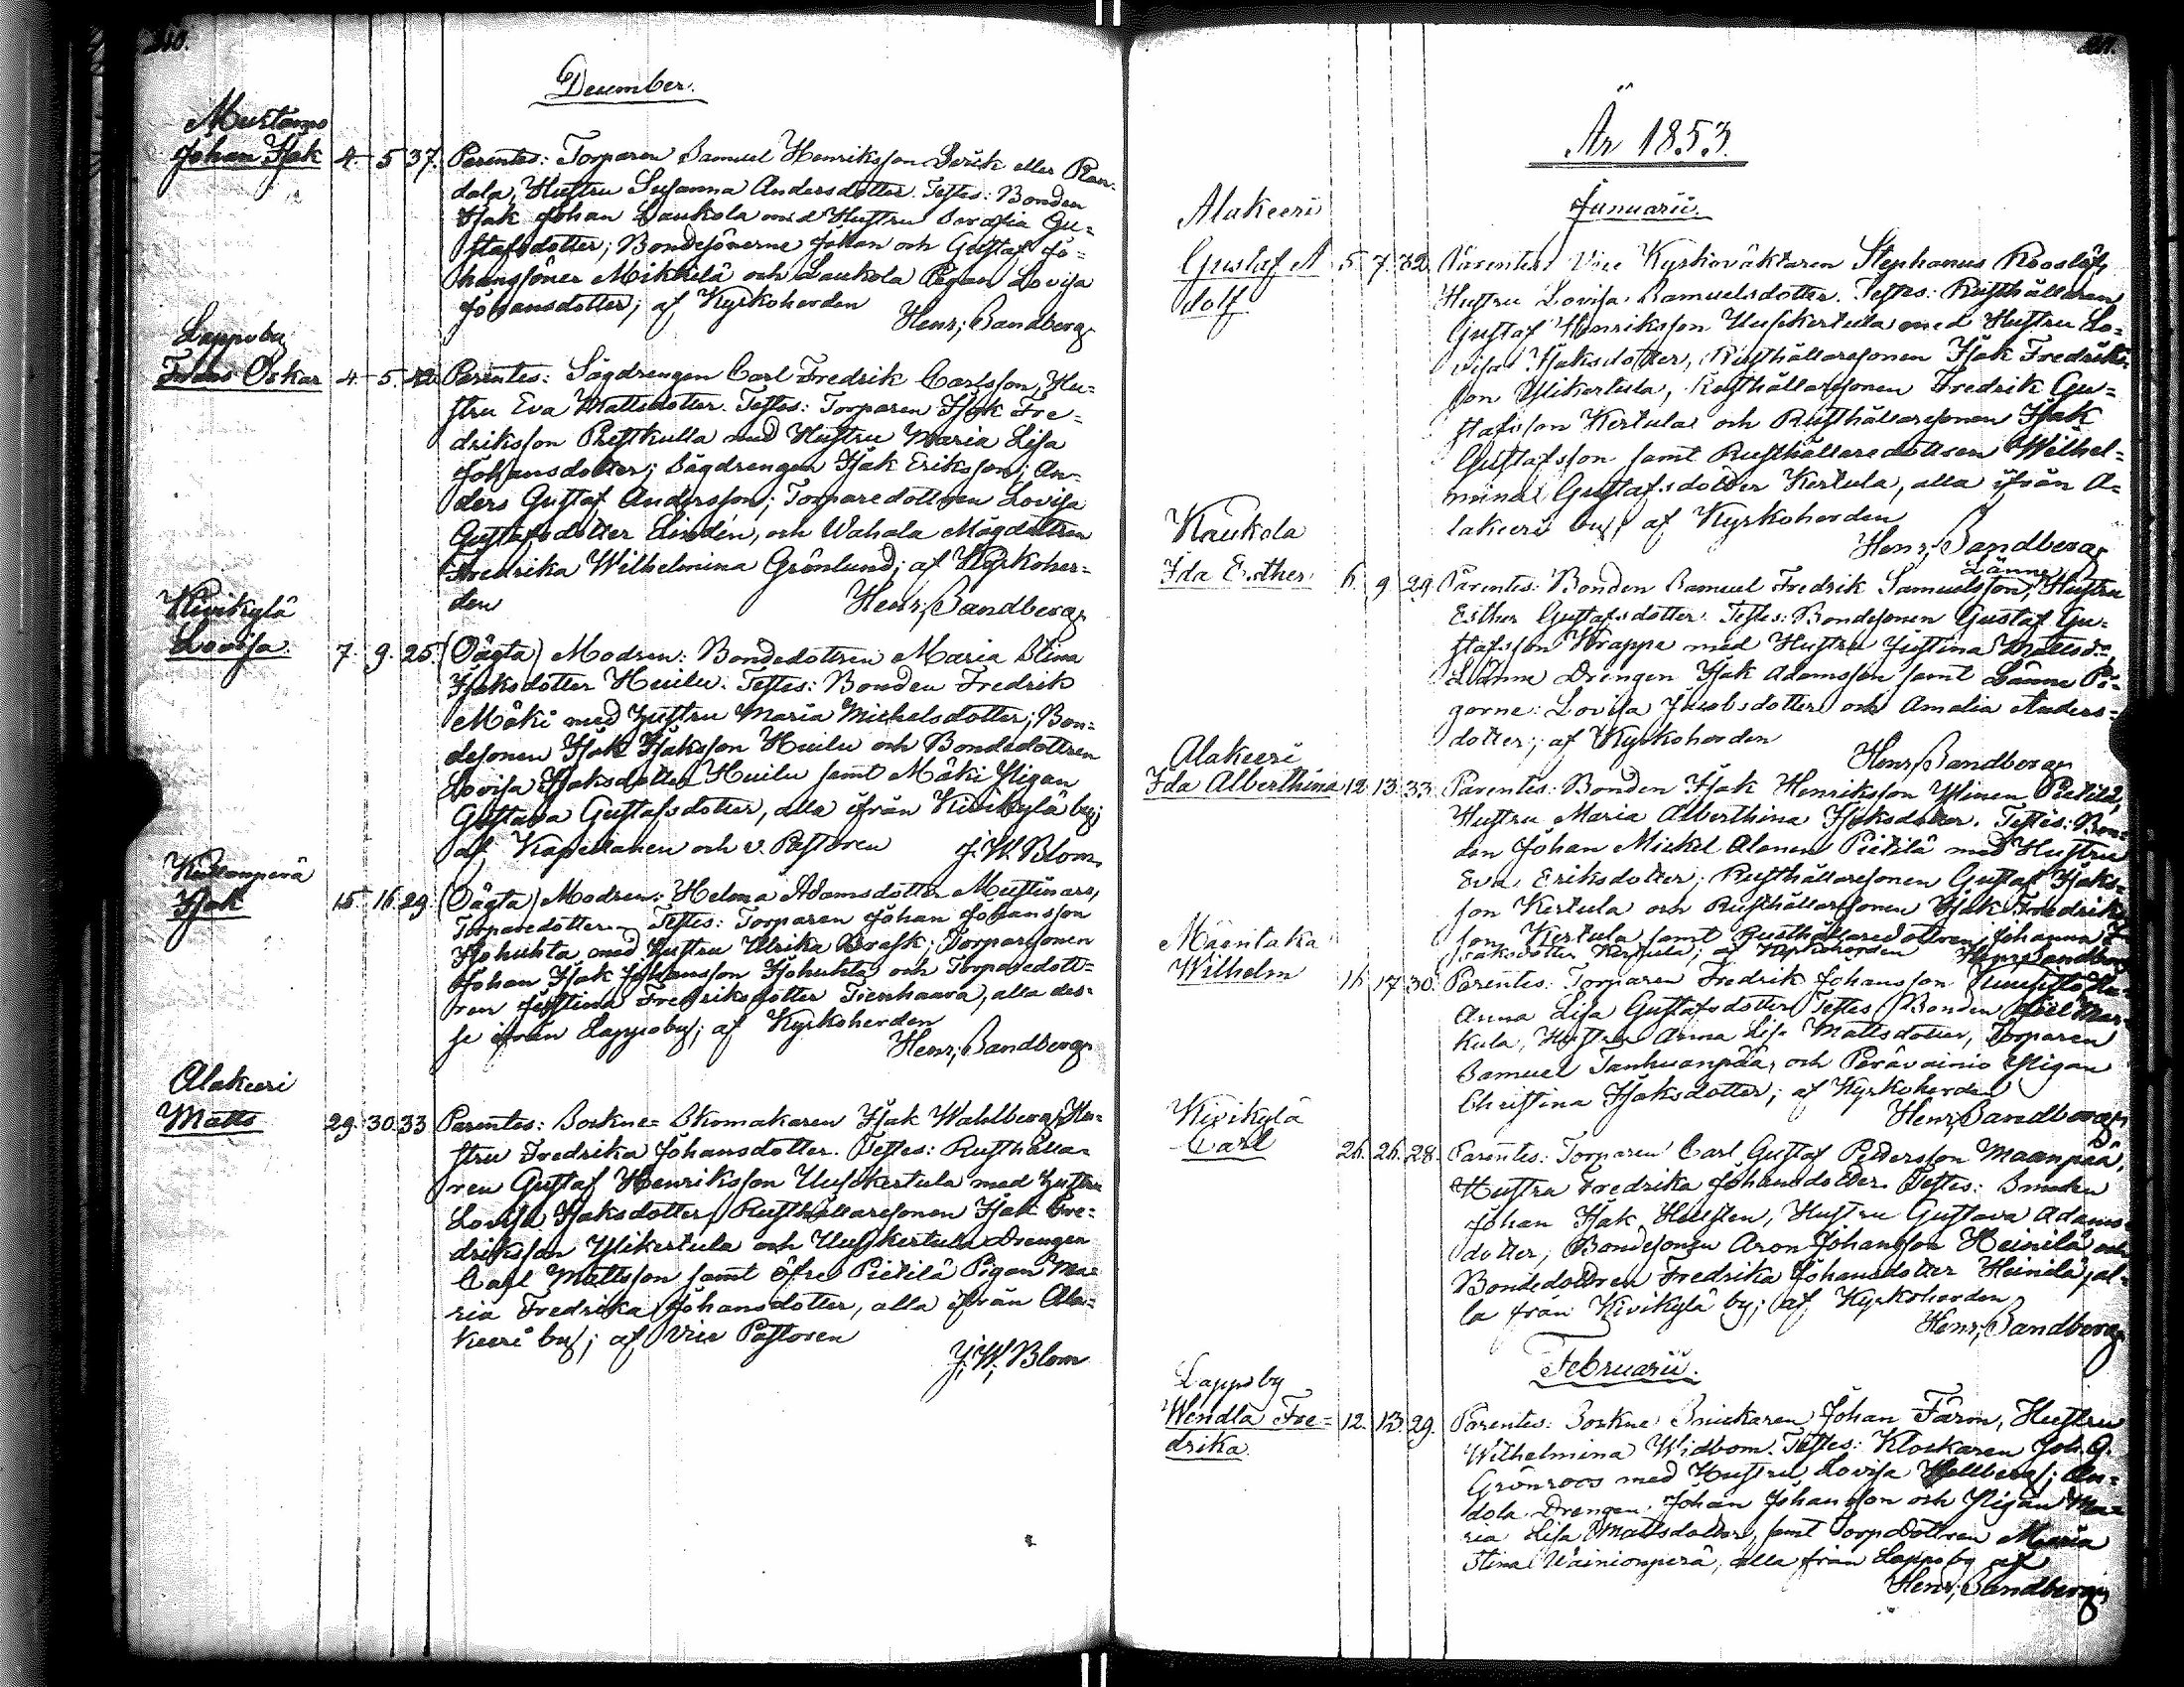 December.
Murtamo
Johan Isak 4. 5 37. Parentes: Torparen Samuel Henriksson eller
dala, Hustru Susanna Andersdotter. Testes: Bonden
Isak Johan Laukola med Hustru Serafia Gu=
stafsdotter; Bondesönerne Johan och Gustaf Jo=
hanssöner Mikkilä och Laukola Pigan Lovisa
Johansdotter; af Kyrkoherden
Henr; Sandberg.
Lappoby
Frans Oskar 4. 5. Parentes: Sågdrengen Carl Fredrik Carlsson, Hu=
stru Eva Mattsdotter. Testes: Torparen Isak Fre=
driksson Prestkulla med Hustru Maria Lisa
Johansdotter; Sågdrengen Isak Eriksson; An=
ders Gustaf Andersson; Torparedottren Lovisa
Gustafsdotter Lindén, och Wahala Mågdottren
Fredrika Wilhelmina Grönlund; af Kyrkoher=
den Henr; Sandberg.
Kivikylä
Lovisa. 7. 9. 25. (Oägta) Modren: Bondedottren Maria Stina
Isaksdotter Huilu. Testes: Bonden Fredrik
Mäki med Hustru Maria Michelsdotter; Bon=
desonen Isak Isaksson Huilu och Bondedottren
Lovisa Isaksdotter Huilu samt Mäki Pigan
Gustava Gustafsdotter, alla ifrån Kivikylä by;
af Kapellanen och v. Pastoren J. W. Blom.
Isak 15. 16. 29. (Oägta) Modren: Helena Adamsdotter
Torparedotter. Testes: Torparen Johan Johansson
Isohuhta med Hustru Ulrika Brask; Torparesonen
Johan Isak Johansson Isohuhta och Torparedott=
ren Justina Fredriksdotter Tienhaara, alla des=
se ifrån Lappo by; af Kyrkoherden
Henr; Sandberg.
Alakeeri
Matts 29. 30. 33 Parentes: Sockne= Skomakaren Isak Wahlberg, Hu=
stru Fredrika Johansdotter. Testes: Rusthålla=
ren Gustaf Henriksson Uusikertula med Hustru
Lovisa Isaksdotter, Rusthållaresonen Isak Fre=
driksson Ylikertula och Uusikertula Drengen
Carl Mattsson samt öfre Pietilä Pigan Ma=
ria Fredrika Johansdotter, alla ifrån Ala=
keeri by; af Vice Pastoren
J. W. Blom
År 1853.
Januarii.
Alakeeri
Gustaf A 5. 7. 32. Parentes: Vice Kyrkoväktaren Stephanus Rooslöf,
dolf Hustru Lovisa Samuelsdotter. Testes: Rusthållaren
Gustaf Henriksson Uusikertula med Hustru Lo=
visa Isaksdotter, Rusthållaresonen Isak Fredriks=
son Ylikertula, Rusthållaresonen Fredrik Gu=
stafsson Kertula och Rusthållaresonen Isak
Gustafsson samt Rusthållaredottren Wilhel=
mina Gustafsdotter Kertula, alla ifrån A=
lakeeri by; af Kyrkoherden
Henr; Sandberg
Kaukola
Ida Esther 6. 9 29. Parentes: Bonden Samuel Fredrik Samuelsson Länne, Hustru
Esther Gustafsdotter. Testes: Bondesonen Gustaf Gu=
stafsson Krappe med Hustru Justina Mattsd:r
Länne Drengen Isak Adamsson samt Länne Pi=
gorne: Lovisa Jacobsdotter och Amalia Anders=
dotter; af Kyrkoherden
Henr; Sandberg
Alakeeri
Ida Alberthina 12. 13. 33. Parentes: Bonden Isak Henriksson Ylinen Pietilä,
Hustru Maria Alberthina Isaksdotter. Testes: Bon=
den Johan Mickel Alanen Pietilä med Hustru
Eva Eriksdotter; Rusthållaresonen Gustaf Isaks=
son Kertula och Rusthållaresonen Isak Fredriks
son Kertula samt Rusthållaredottren Johanna I=
saksdotter Kertula; af Kyrkoherden Henr; Sandberg
Mäentaka
Wilhelm 16. 17. 30. Parentes: Torparen Fredrik Johansson
Anna Lisa Gustafsdotter. Testes: Bonden
kula, Hustru Anna Lisa Mattsdotter, Torparen
Samuel Tanhuanpää, och Perävainio Pigan
Christina Isaksdotter; af Kyrkoherden
Henr; Sandberg
Kivikylä
Carl 26. 26. 28. Parentes: Torparen Carl Gustaf Pettersson Maanpää,
Hustru Fredrika Johansdotter. Testes:
Johan Isak Hellsten, Hustru Gustava Adams=
dotter, Bondesonen Aron Johansson Heinilä och
Bondedottren Fredrika Johansdotter Heinilä; al=
la från Kivikylä by; af Kyrkoherden
Henr; Sandberg
Februarii.
Lappo by
Wendla Fre= 12. 13. 29. Parentes: Sockne Snickaren Johan Färm, Hustru
drika. Wilhelmina Widbom. Testes: Klockaren Joh. G.
Grönroos med Hustru Lovisa Hellberg; An=
dola Drengen Johan Johansson och Pigan Ma=
ria Lisa Mattsdotter, samt Torpdottren Maria
Stina Wäinionperä, alla från Lappo by af
Henr; Sandberg